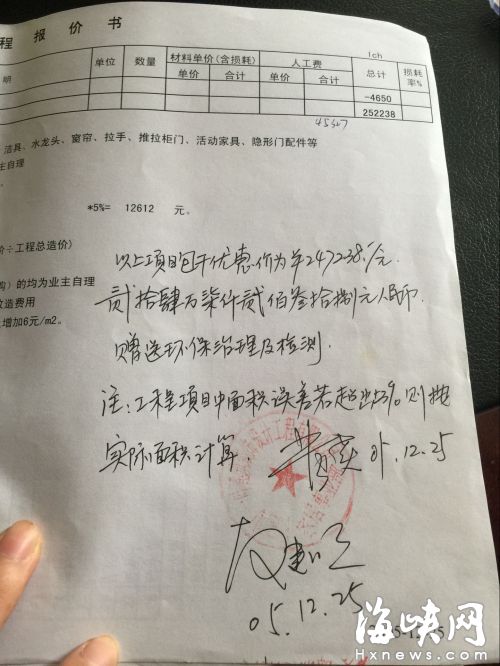 程 报 价 书
lch
明 单位 数量 材料单价(含损耗) 人工费 总计 损耗率%
单价 合计 单价 合计
-4650
252238
洁具、水龙头、窗帘、拉手、推拉柜门、活动家具、隐形门配件等
主自理
*5%= 12612 元。
价÷工程总造价)
购）的均为业主自理
改造费用
增加6元/m2。
以上项目包干优惠价为¥247238./元.
贰拾肆万柒仟贰佰叁拾捌元人民币.
赠送环保治理及检测.
注:工程项目中面积误差若超出3%则按
实际面积计算.
05.12.25
05.12.25
海峡网
Hxnews.com